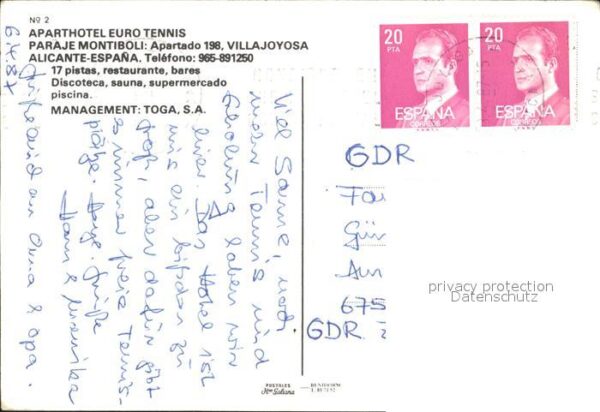 Nº 2
APARTHOTEL EURO TENNIS
PARAJE MONTIBOLI: Apartado 198, VILLAJOYOSA
ALICANTE-ESPAÑA. Teléfono: 965-891250
17 pistas, restaurante, bares
Discoteca, sauna, supermercado
piscina.
MANAGEMENT: TOGA, S.A.
6.4.87
Viel Sonne, noch
mehr Tennis und
Erholung haben wir
hier. Das Hotel ist
uns ein bißchen zu
groß, aber dafür gibt
es immer freie Tennis-
plätze. Herzl. Grüße
Hans & Marika
Grüße auch an Oma & Opa.
20
PTA
ESPAÑA
CORREOS
20
PTA
ESPAÑA
CORREOS
GDR
Fa
Gün
Aun
675
GDR
privacy protection
Datenschutz
POSTALES